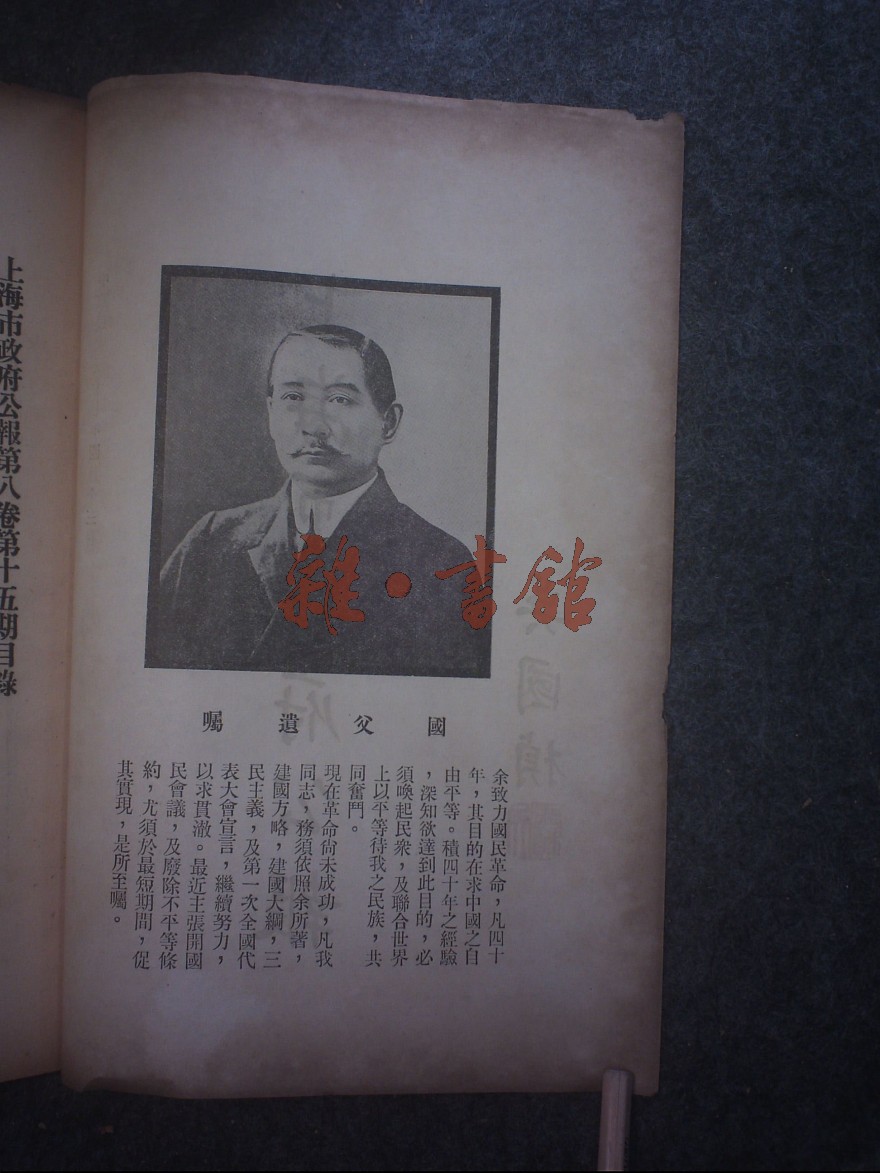 國父遺囑
余致力國民革命，凡四十
年，其目的在求中國之自
由平等。積四十年之經驗
，深知欲達到此目的，必
須喚起民衆，及聯合世界
上以平等待我之民族，共
同奮鬥。
現在革命尚未成功，凡我
同志，務須依照余所著，
建國方略，建國大綱，三
民主義，及第一次全國代
表大會宣言，繼續努力，
以求貫澈。最近主張開國
民會議，及廢除不平等條
約，尤須於最短期間，促
其實現，是所至囑。
上海市政府公報第八卷第十五期目錄
雜•書館